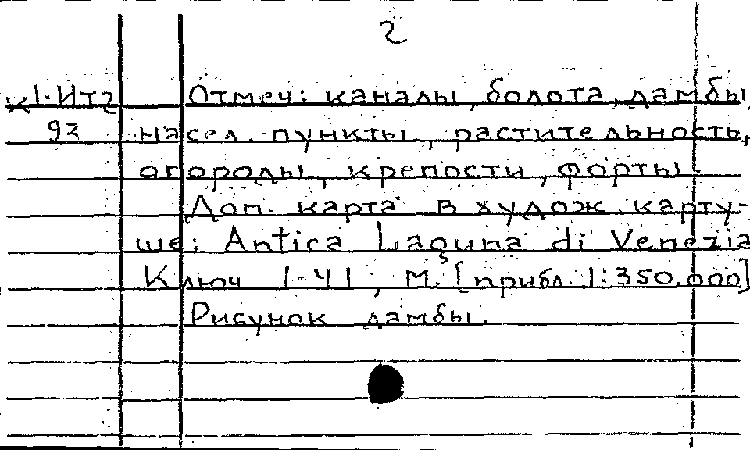 2
к1-Итг Отмеч: каналы, болота, дамбы
93 насел. пункты, растительность,
огороды, крепости, форты.
Доп. карта в худож. карту-
ше: Antica Laguna di Venezia
Ключ 1-41, М. [прибл. 1:350.000]
Рисунок дамбы.